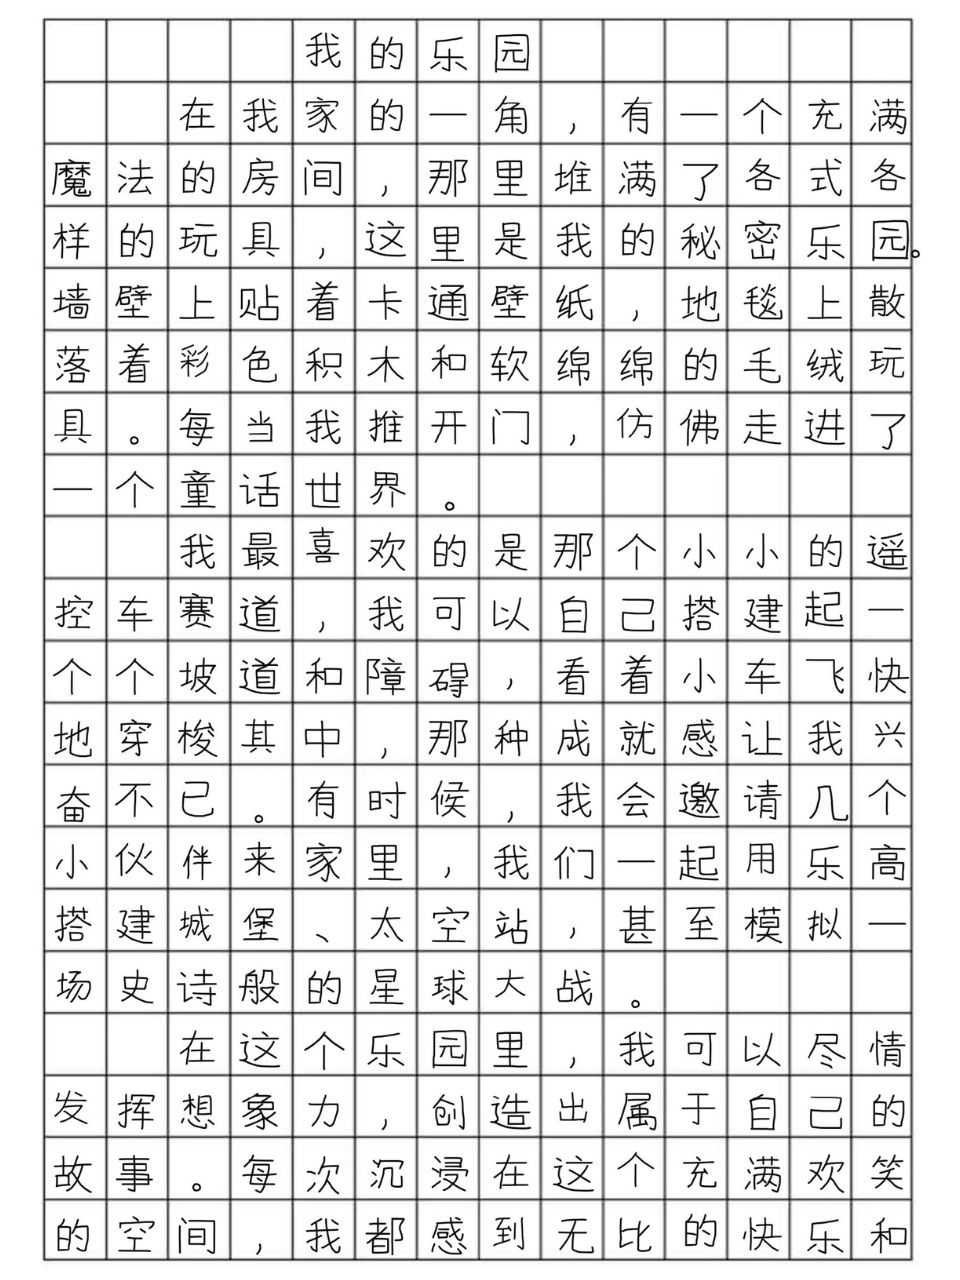 我的乐园
在我家的一角，有一个充满
魔法的房间，那里堆满了各式各
样的玩具，这里是我的秘密乐园。
墙壁上贴着卡通壁纸，地毯上散
落着彩色积木和软绵绵的毛绒玩
具。每当我推开门，仿佛走进了
一个童话世界。
我最喜欢的是那个小小的遥
控车赛道，我可以自己搭建起一
个个坡道和障碍，看着小车飞快
地穿梭其中，那种成就感让我兴
奋不已。有时候，我会邀请几个
小伙伴来家里，我们一起用乐高
搭建城堡、太空站，甚至模拟一
场史诗般的星球大战。
在这个乐园里，我可以尽情
发挥想象力，创造出属于自己的
故事。每次沉浸在这个充满欢笑
的空间，我都感到无比的快乐和